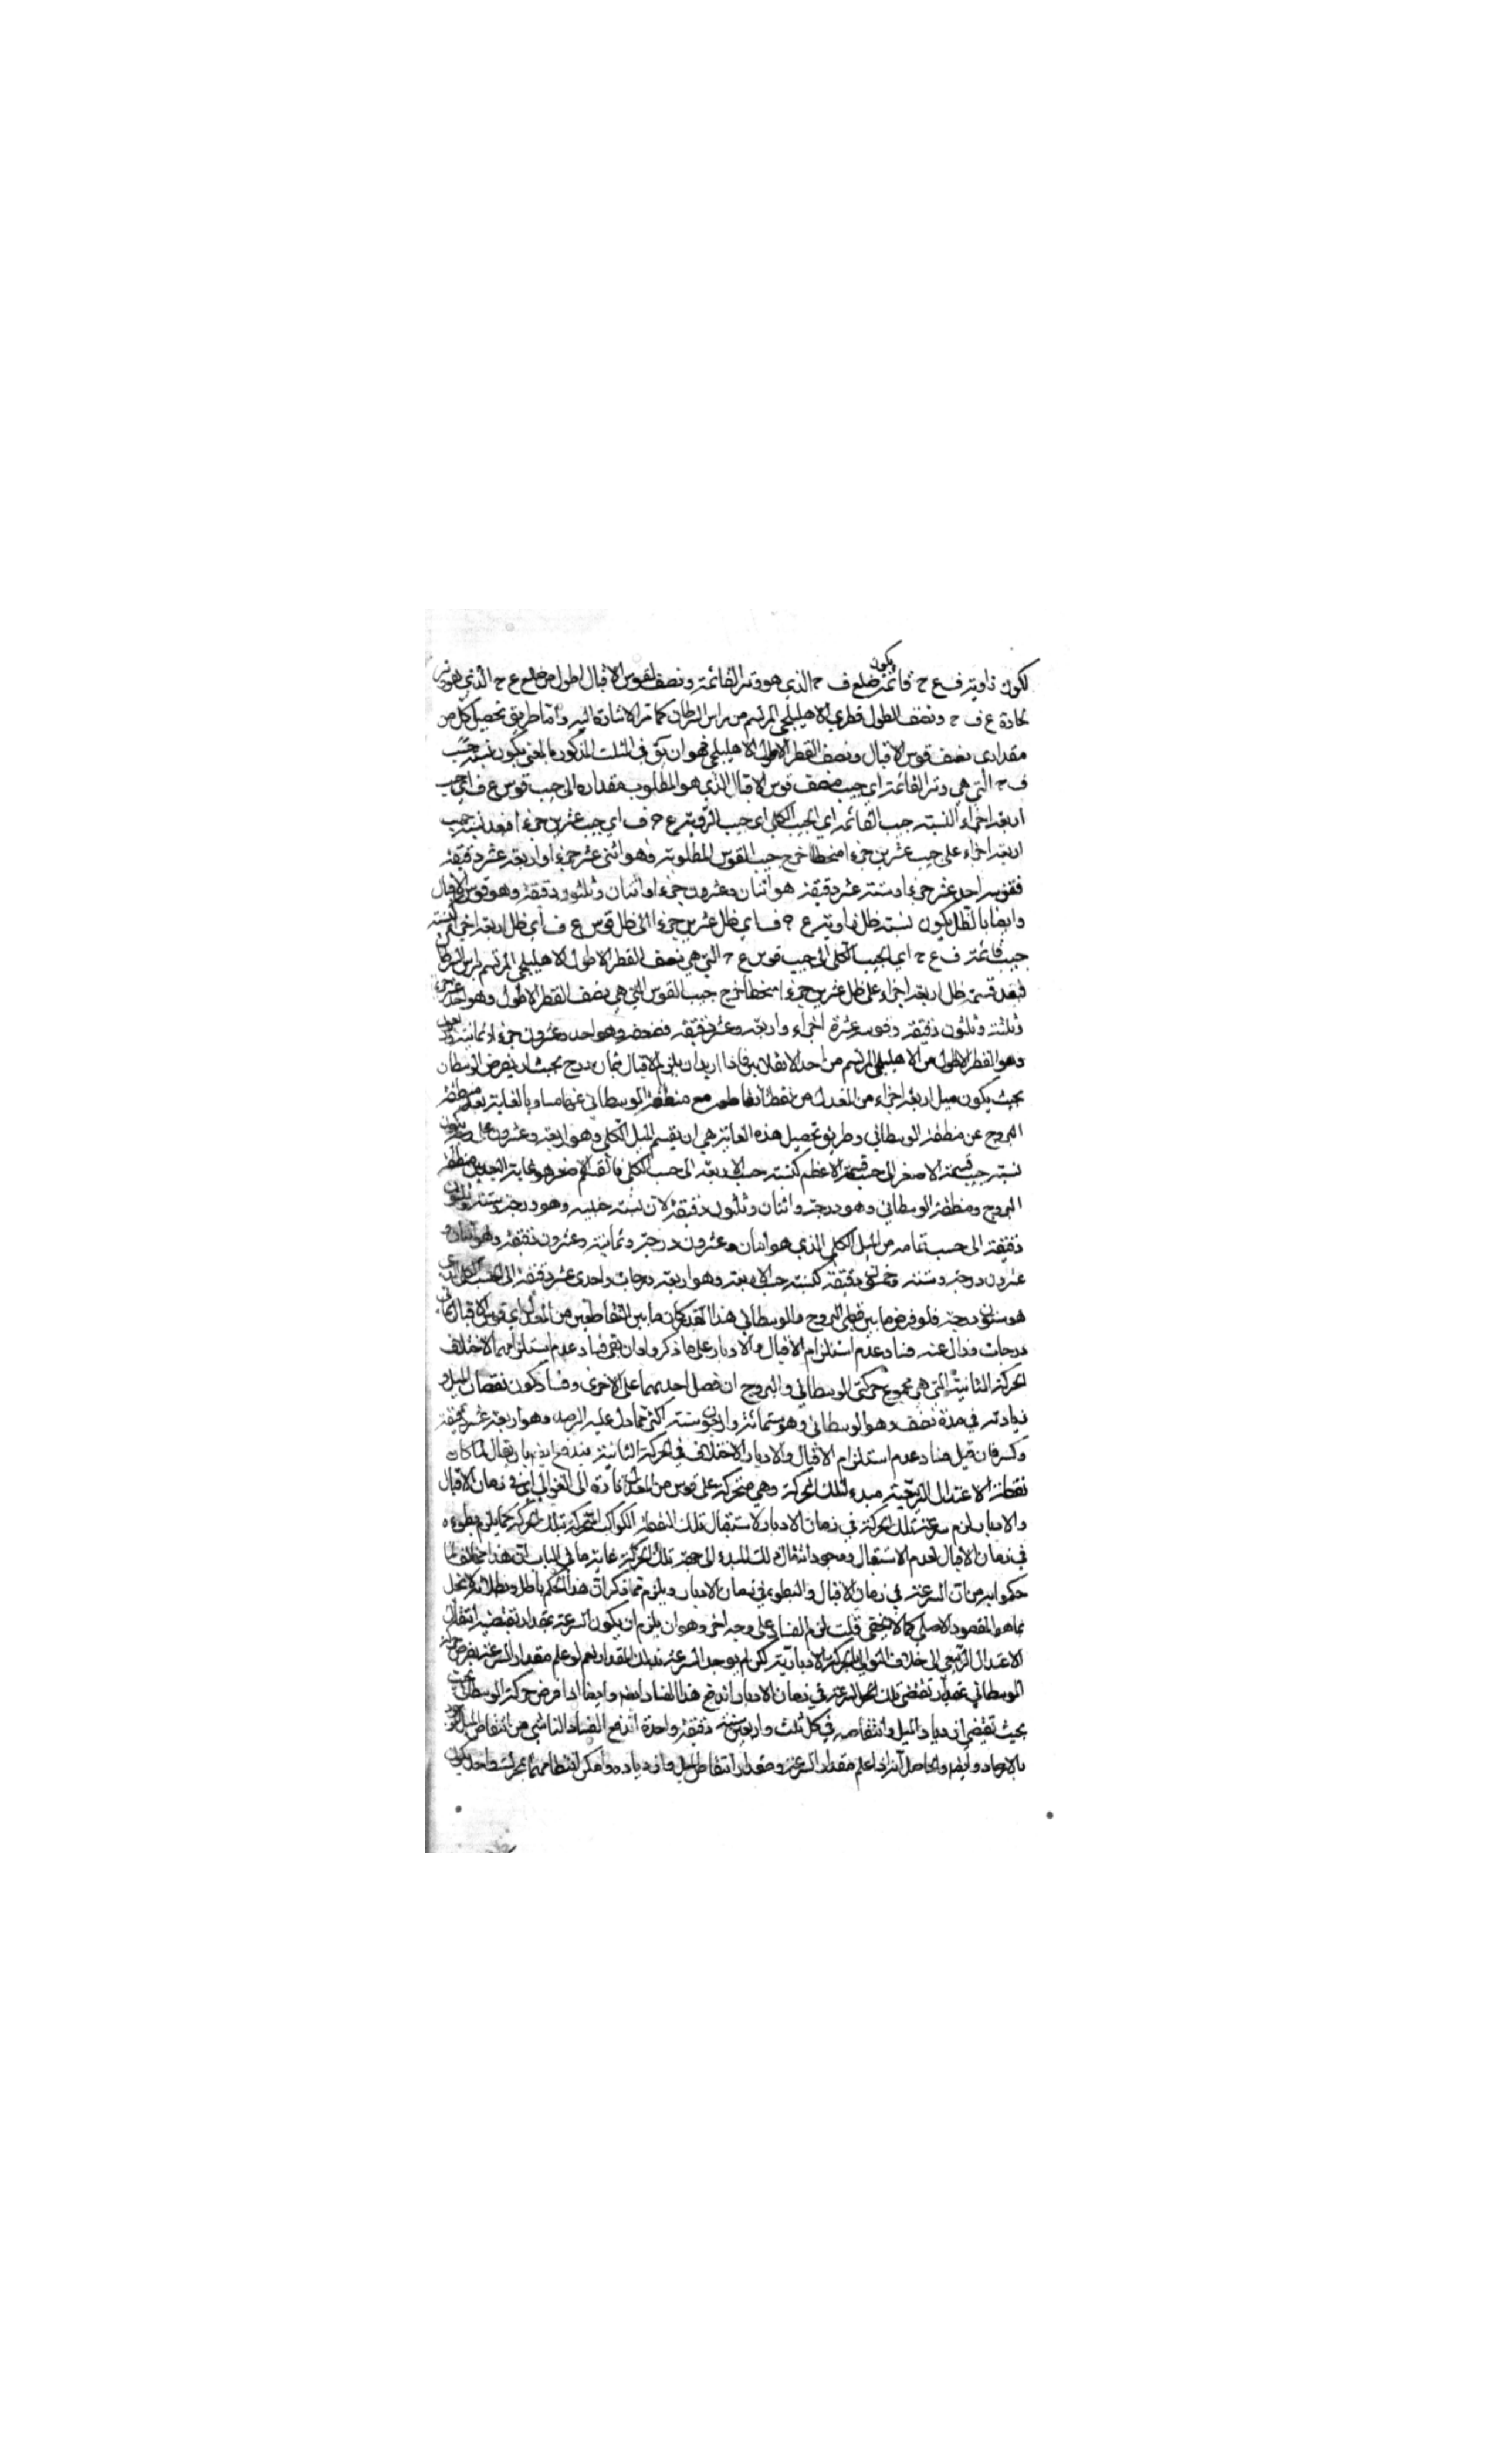 لكون زاوية ف ع ح قائمة يكون ضلع ف ح الذي هو وتر القائمة ونصف لقوس الاقبال اطول من ضلع ع ح الذي هو وتر
لحادة ع ف ح ونصف اطول قطري الاهليلجي المرتسم من راس السرطان كما مر الاشارة اليه واما طريق تحصيل كل من
مقداري نصف قوس الاقبال ونصف القطر الاطول الاهليلجي فهو ان في المثلث المذكور بالمغني يكون نسبة جيب
ف ح التي هي وتر القائمة اي جيب نصف قوس الاقبال الذي هو المطلوب مقداره الى جيب قوس ع ف اي جيب
اربعة اجزاء كنسبة جيب القائمة اي الجيب الكلي اي جيب الزاوية ع ح ف اي جيب عشرين جزءا فبعد قسمة جيب
اربعة اجزاء على جيب عشرين جزءا منحطا خرج جيب القوس المطلوبة وهو اثني عشر جزءا واربعة عشر دقيقة
فقوسه احد عشر جزءا وستة عشر دقيقة هو اثنان وعشرون جزءا واثنان وثلثون دقيقة وهو قوس الاقبال
وايضا بالظل يكون نسبة ظل زاوية ع ح ف اي ظل عشرين جزءا الى ظل قوس ع ف اي ظل اربعة اجزاء كنسبة
جيب قائمة ف ع ح اي الجيب الكلي الى جيب قوس ع ح التي هي نصف القطر الاطول الاهليلجي المرتسم لراس السرطان
فبعد قسمة ظل اربعة اجزاء على ظل عشرين جزءا منحطا خرج جيب القوس التي هي نصف القطر الاطول وهو احد عشر
وثلثة وثلثون دقيقة وقوسه عشرة اجزاء واربعة وعشر دقيقة فضعفه وهو احد وعشرون جزءا وثمانية
وهو القطر الاطول من الاهليلجي المرتسم من احد الانقلابين فاذا اريد ان يلزم الاقبال ثمان درج يجب ان يفرض الوسطاني
بحيث يكون ميل اربعة اجزاء من المعدل من نقطة تقاطعه مع منطقة الوسطاني عنها مساويا لغاية بعد منطقة
البروج عن منطقة الوسطاني وطريق تحصيل هذه الغاية هي ان يقسم الميل الكلي وهو اربعة وعشرون على وجه يكون
نسبة جيب قسمه الاصغر الى جيب قسمه الاعظم كنسبة جيب الاربعة الى جيب الكلي فالقسم الاصغر هو غاية البعد بين منطقة
البروج ومنطقة الوسطاني وهو درجة واثنان وثلثون دقيقة لان نسبة جيبه وهو درجة وستة وثلثون
دقيقة الى جيب تمامه من الميل الكلي الذي هو اثنان وعشرون درجة وثمانية وعشرون دقيقة وهو اثنان و
عشرون درجة وستة وخمسون دقيقة كنسبة جيب الاربعة وهو اربعة درجات واحدى عشر دقيقة الى الجيب الكلي الذي
هو ستون درجة فلو فرض ما بين قطبي البروج والوسطاني هذا القدر كان ما بين التقاطعين من المعدل اي قوس الاقبال ثماني
درجات فزال عنه فساد عدم استلزام الاقبال والادبار على ما ذكروا وان بقي فساد عدم استلزامهما الاختلاف
الحركة الثانية التي هي مجموع حركتي الوسطاني والبروج ان فصل احديهما على الاخرى وفساد كون نقصان الميل و
زيادته في مدة نصف وهو الوسطاني وهو ستمائة واربعون سنة اكثر مما دل عليه الرصد وهو اربعة عشر دقيقة
وكسر فان قيل فساد عدم استلزام الاقبال والادبار الاختلاف في الحركة الثانية يندفع ايضا بان يقال لما كان
نقطة الاعتدال الربيعية مبدء لتلك الحركة وهي متحركة على قوس من المعدل تارة الى التوالي اي في زمان الاقبال
والادبار لزم سرعة تلك الحركة في زمان الادبار لاستقبال تلك النقطة الكواكب المتحركة بتلك الحركة كما يلزم بطوءه
في زمان الاقبال لعدم الاستقبال ووجود انتقال ذلك المبدء الى جهة تلك الحركة غاية ما في الباب ان هذا مخالف لما
حكموا به من ان السرعة في زمان الاقبال والبطوء في زمان الادبار ويلزم مما ذكر ان هذا الحكم باطل وبطلانه لا يخل
بما هو المقصود الاصلي كما لا يخفى قلت لزم الفساد على وجه اخر وهو ان يلزم ان يكون السرعة بمقدار يقتضيه انتقال
الاعتدال الربيعي الى خلاف التوالي بالحركة الادبارية لكن لم يوجد السرعة بذلك المقدار نعم لو علم مقدار السرعة بفرض حركة
الوسطاني بمقدار يقتضي تلك السرعة في زمان الادبار اندفع هذا الفساد ايضا وايضا اذا فرض حركة الوسطاني بحيث
بحيث يقتضي ازدياد الميل وانتقاصه في كل ثلث واربعين سنة دقيقة واحدة اندفع الفساد الناشي من انتقاص الميل
بالارصاد وايضا والحاصل انه اذا علم مقدار السرعة ومقدار انتقاص الميل وازدياده وامكن انتظامهما بحركة واحدة يكون